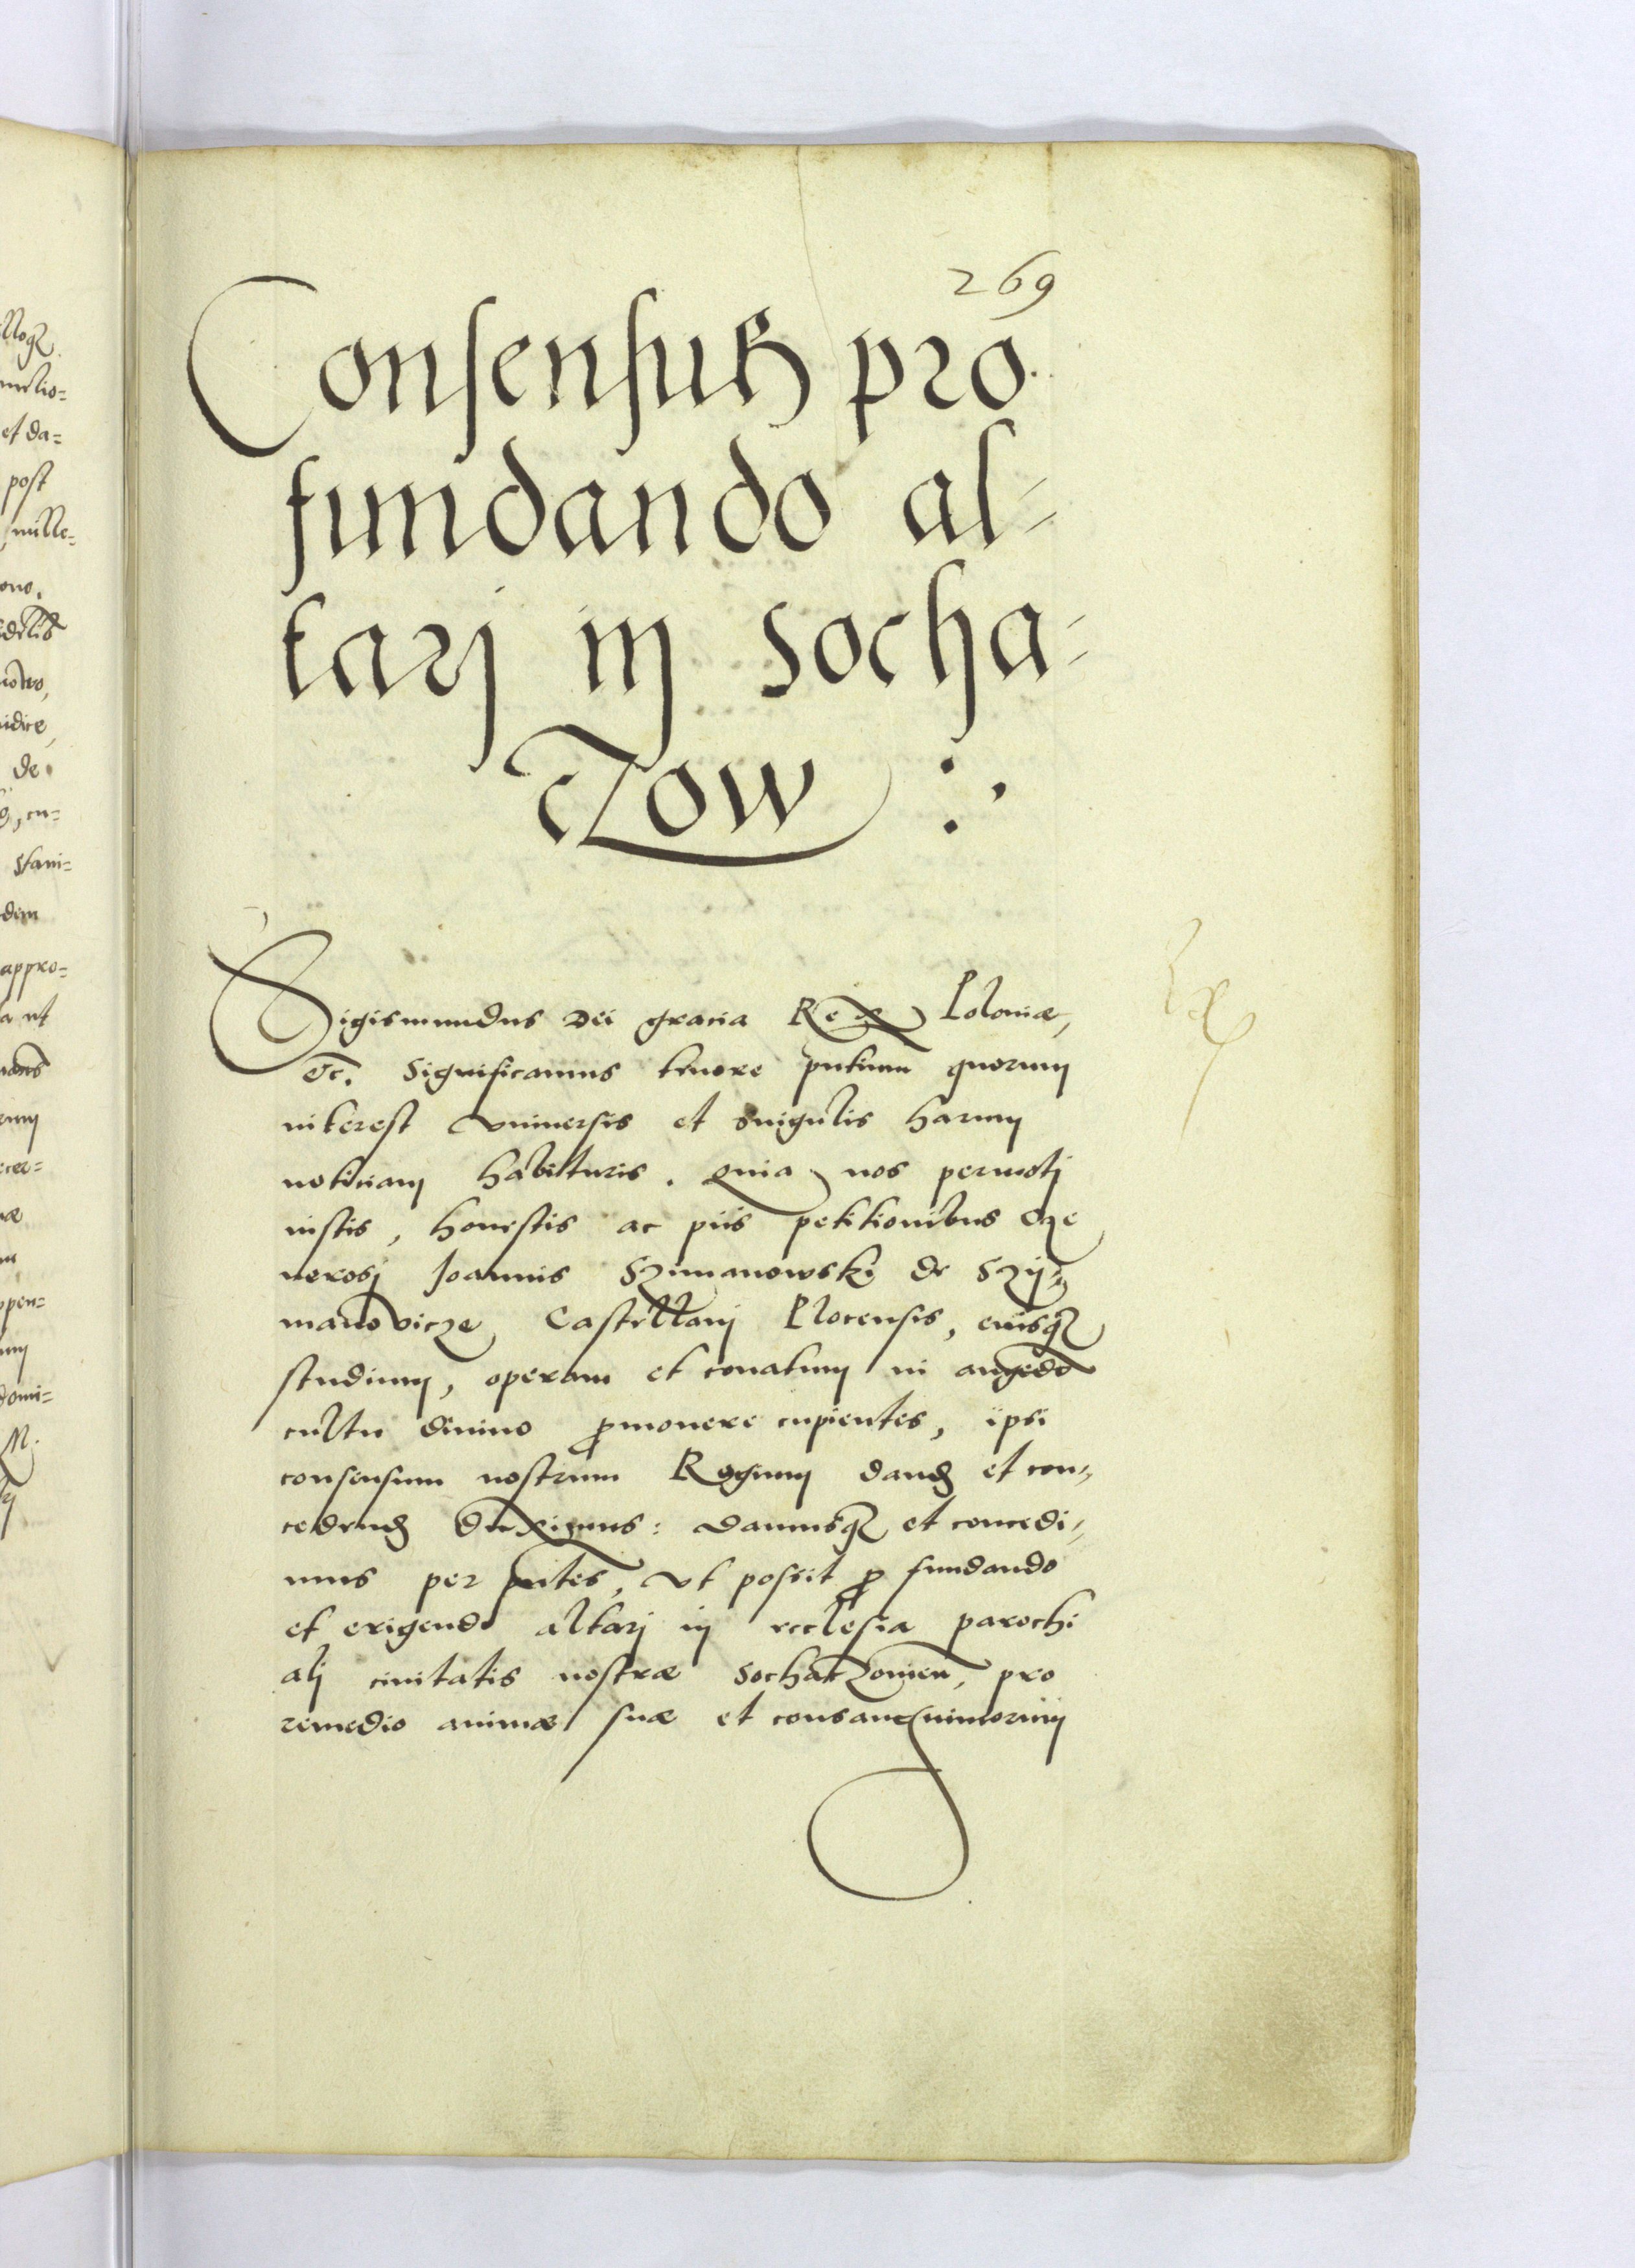 269
Consensus pro
fundando al-
tarj in Socha-
czow :
Sigismundus Dei gracia Rex Poloniæ,
etc. Significamus tenore pntium quorum
interest vniuersis et singulis harum
notitiam habituris. Quia nos permotj
iustis, honestis ac piis petitionibus Ge
nerosj Joannis Szimanowski de Szÿ=
manovicze, Castellanj Plocensis, eiusq
studium, operam et conatum in augedo
cultu diuino pmouere cupientes, ipsi
consensum nostrum Regium dand et con-
cedend duximus: damusq et concedi-
mus per pntes, vt possit p fundando
et erigendo altarj in ecclesia parochi
alj ciuitatis nostræ Sochaczouien, pro
remedio animæ suæ et consanguineorum
llogq
melio=
et da=
post
mille=
ono.
idice,
de
Stani=
dem
appro=
a ut
ppen=
domi=
M.